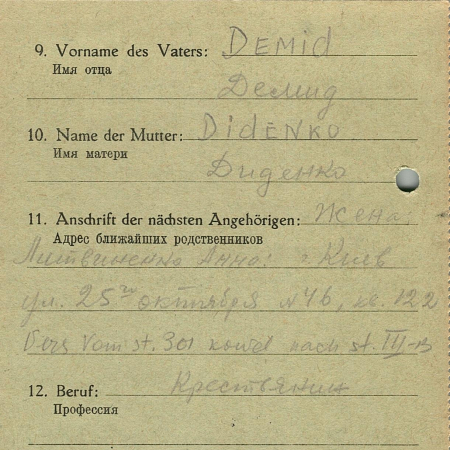 9. Vorname des Vaters: DEMID
Имя отца
Демид
10. Name der Mutter: DIDENKO
Имя матери
Диденко
11. Anschrift der nächsten Angehörigen: Жена:
Адрес ближайших родственников
Литвиненко Анна: г. Киев
ул. 25го октября N 46, кв. 122
Vers vom st. 301 Kowel nach st. III-B
12. Beruf: Крестьянин
Профессия